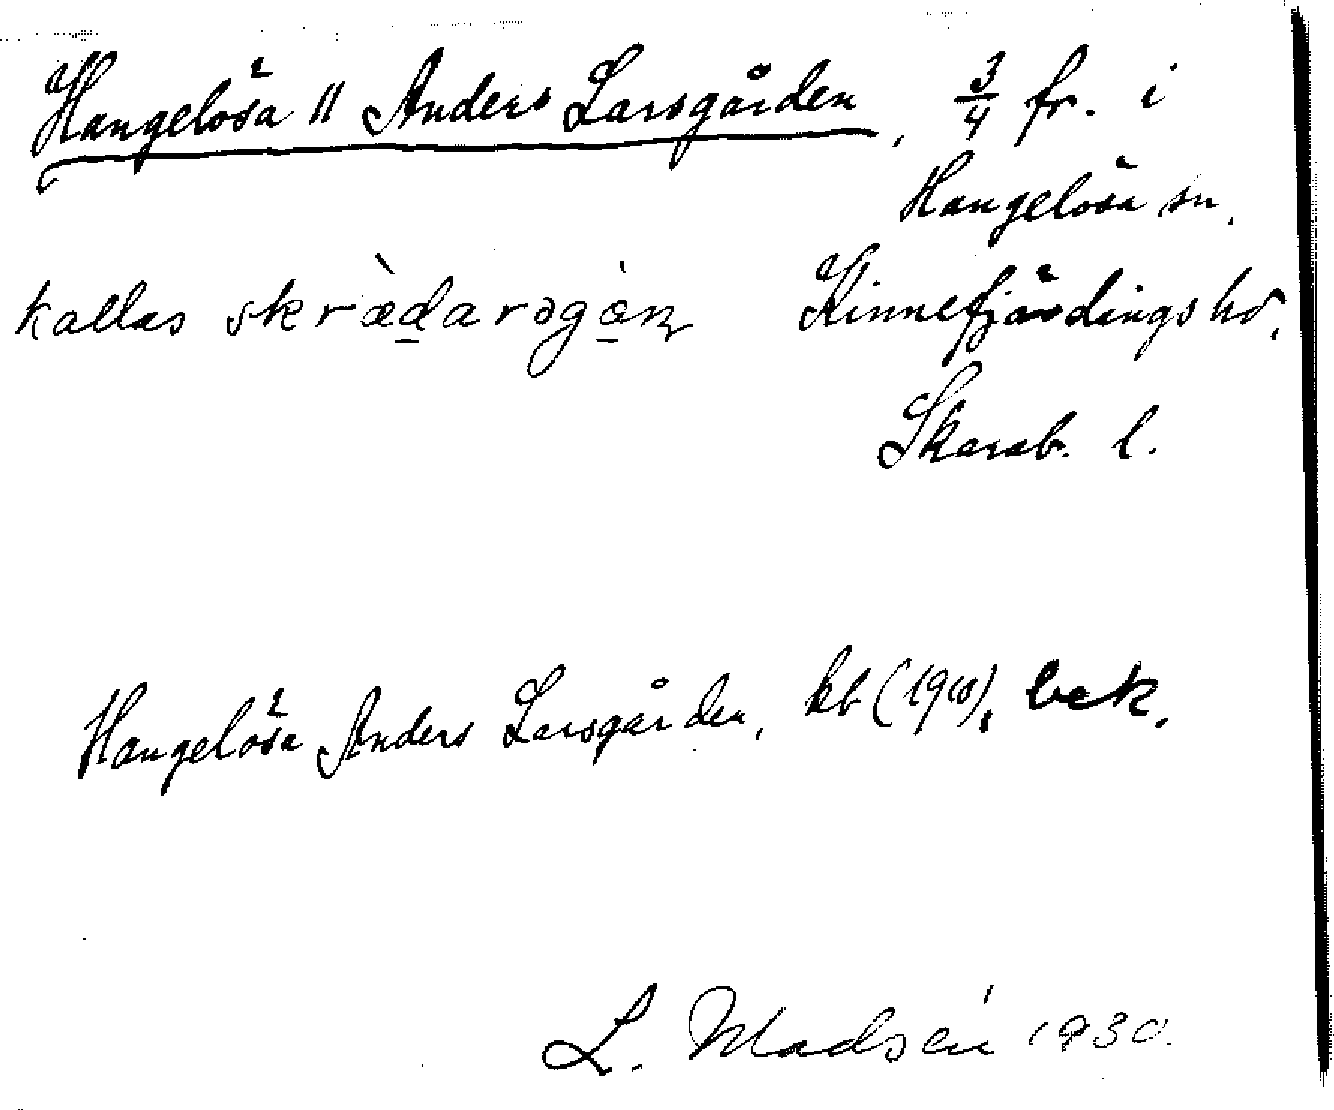 Hangelösa 11 Anders Larsgården, 3/4 fr. i
Hangelösa sn.
kallas skræ̀darəgàn Kinnefjärdings hd.
Skarab. l.
Hangelösa Anders Larsgården, kb (1910), bek.
L. Madsén 1930.